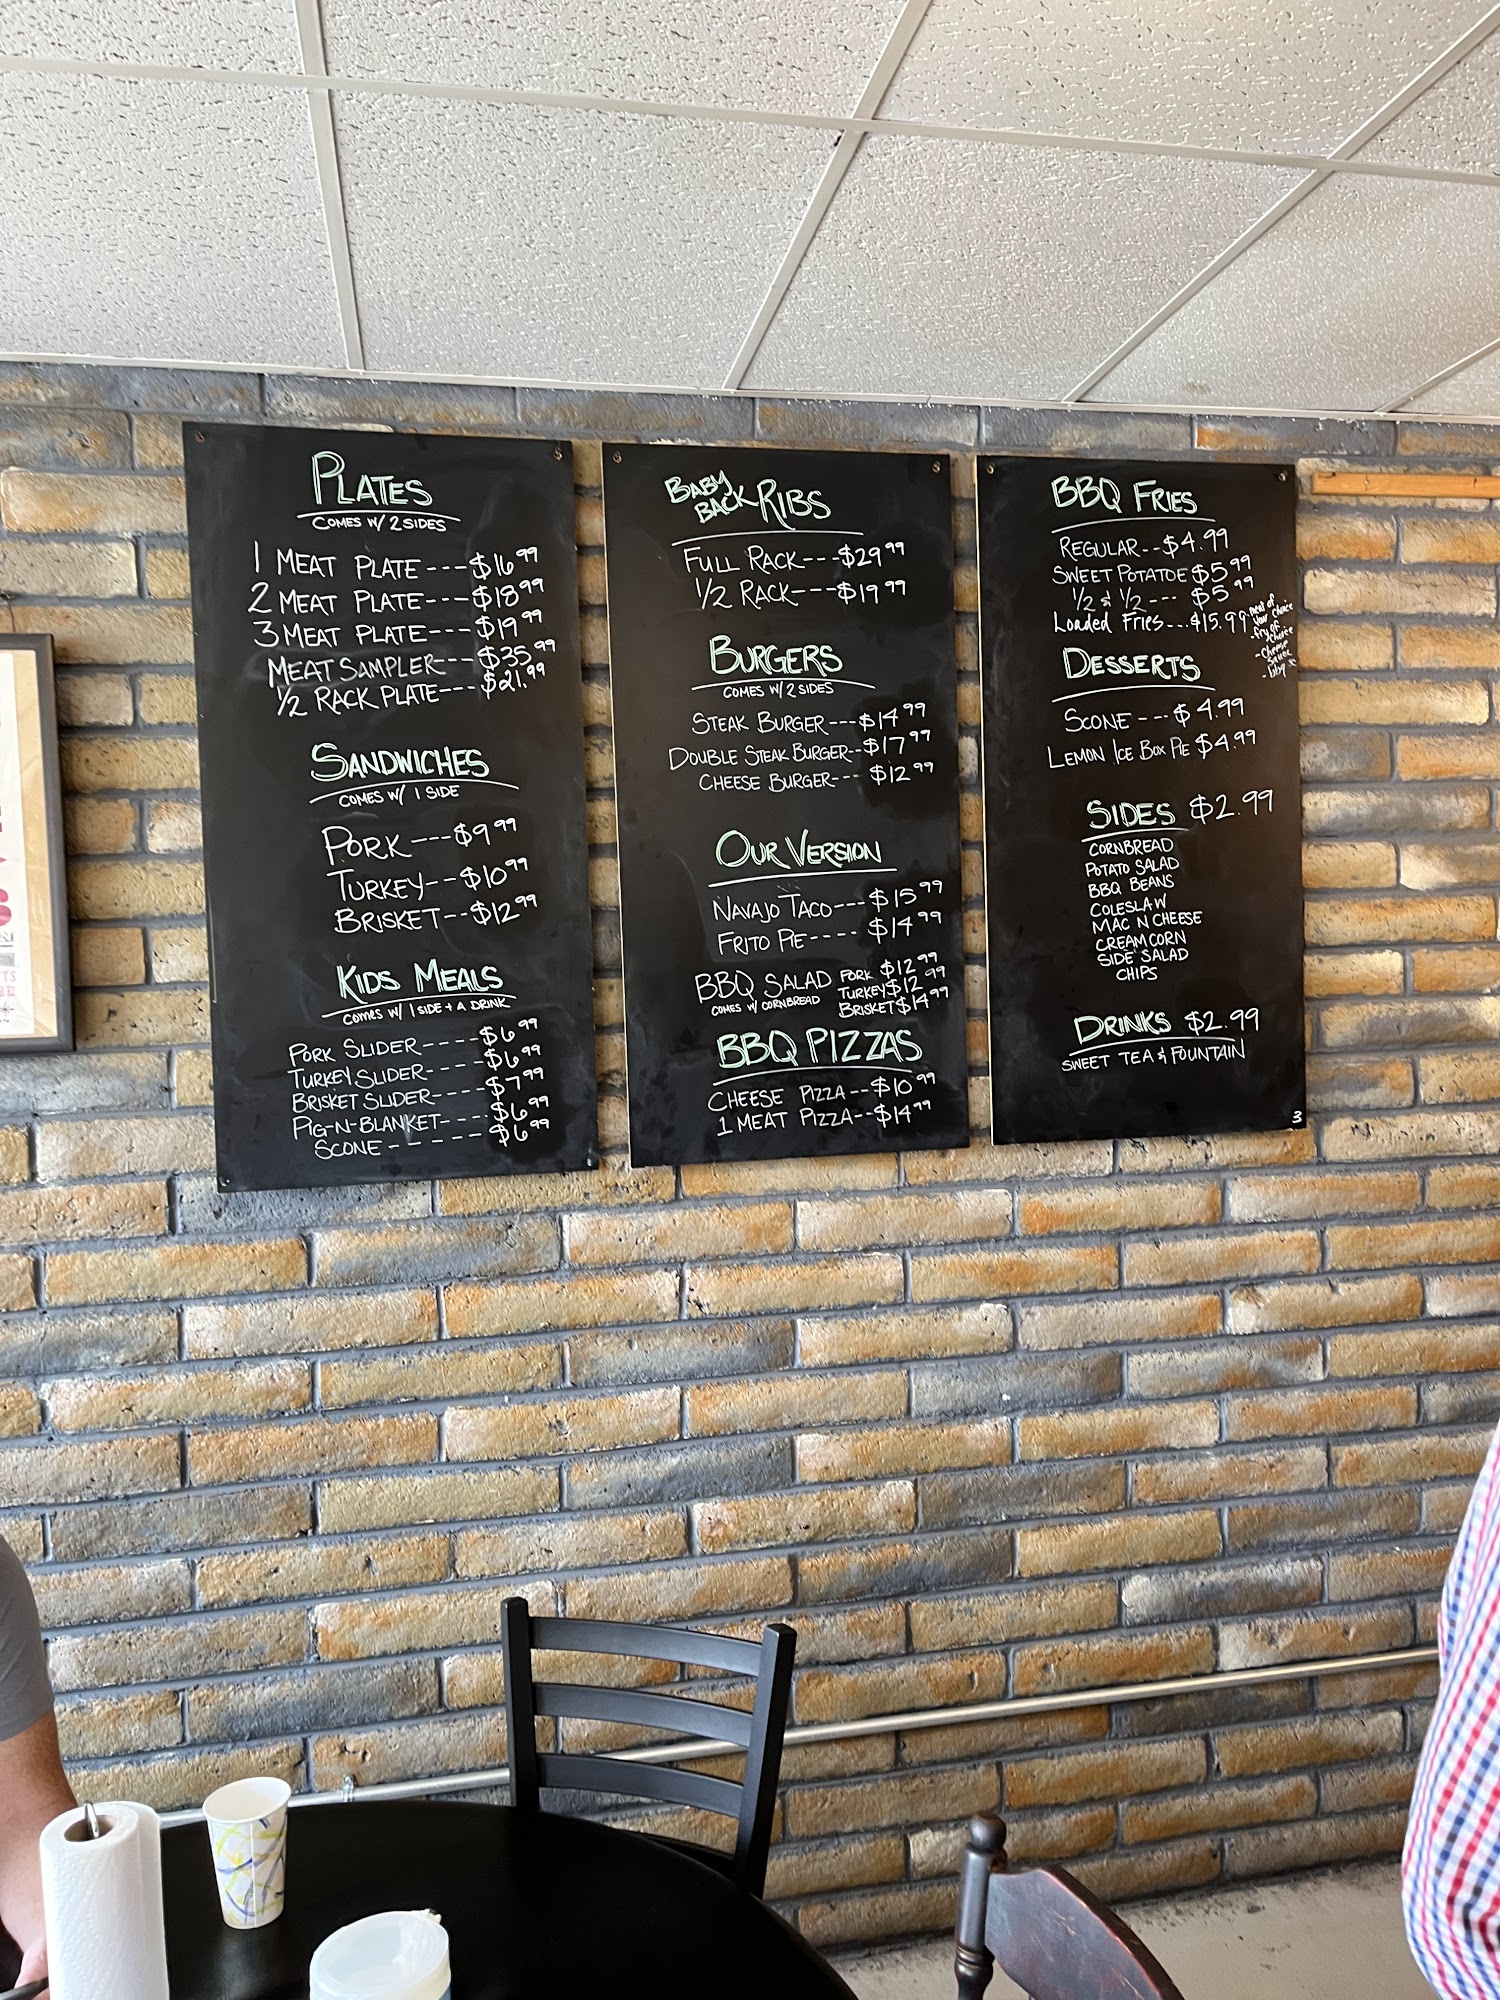 PLATES
COMES W/ 2 SIDES
1 MEAT PLATE---$16.99
2 MEAT PLATE---$18.99
3 MEAT PLATE---$19.99
MEAT SAMPLER---$35.99
1/2 RACK PLATE---$21.99
SANDWICHES
COMES W/ 1 SIDE
PORK---$9.99
TURKEY--$10.99
BRISKET--$12.99
KIDS MEALS
COMES W/ 1 SIDE + A DRINK
PORK SLIDER----$6.99
TURKEY SLIDER----$6.99
BRISKET SLIDER----$7.99
PIG-N-BLANKET---$6.99
SCONE------$6.99
BABY BACK RIBS
FULL RACK---$29.99
1/2 RACK---$19.99
BURGERS
COMES W/ 2 SIDES
STEAK BURGER---$14.99
DOUBLE STEAK BURGER--$17.99
CHEESE BURGER---$12.99
OUR VERSION
NAVAJO TACO---$15.99
FRITO PIE----$14.99
BBQ SALAD
COMES W/ CORNBREAD
PORK $12.99
TURKEY $12.99
BRISKET $14.99
BBQ PIZZAS
CHEESE PIZZA--$10.99
1 MEAT PIZZA--$14.99
BBQ FRIES
REGULAR--$4.99
SWEET POTATOE $5.99
1/2 & 1/2---$5.99
Loaded Fries---$15.99
-meat of
your choice
-fry of
choice
-cheese
sauce
-bbq
DESSERTS
SCONE---$4.99
LEMON ICE BOX PIE $4.99
SIDES $2.99
CORNBREAD
POTATO SALAD
BBQ BEANS
COLESLAW
MAC N CHEESE
CREAM CORN
SIDE SALAD
CHIPS
DRINKS $2.99
SWEET TEA & FOUNTAIN
3